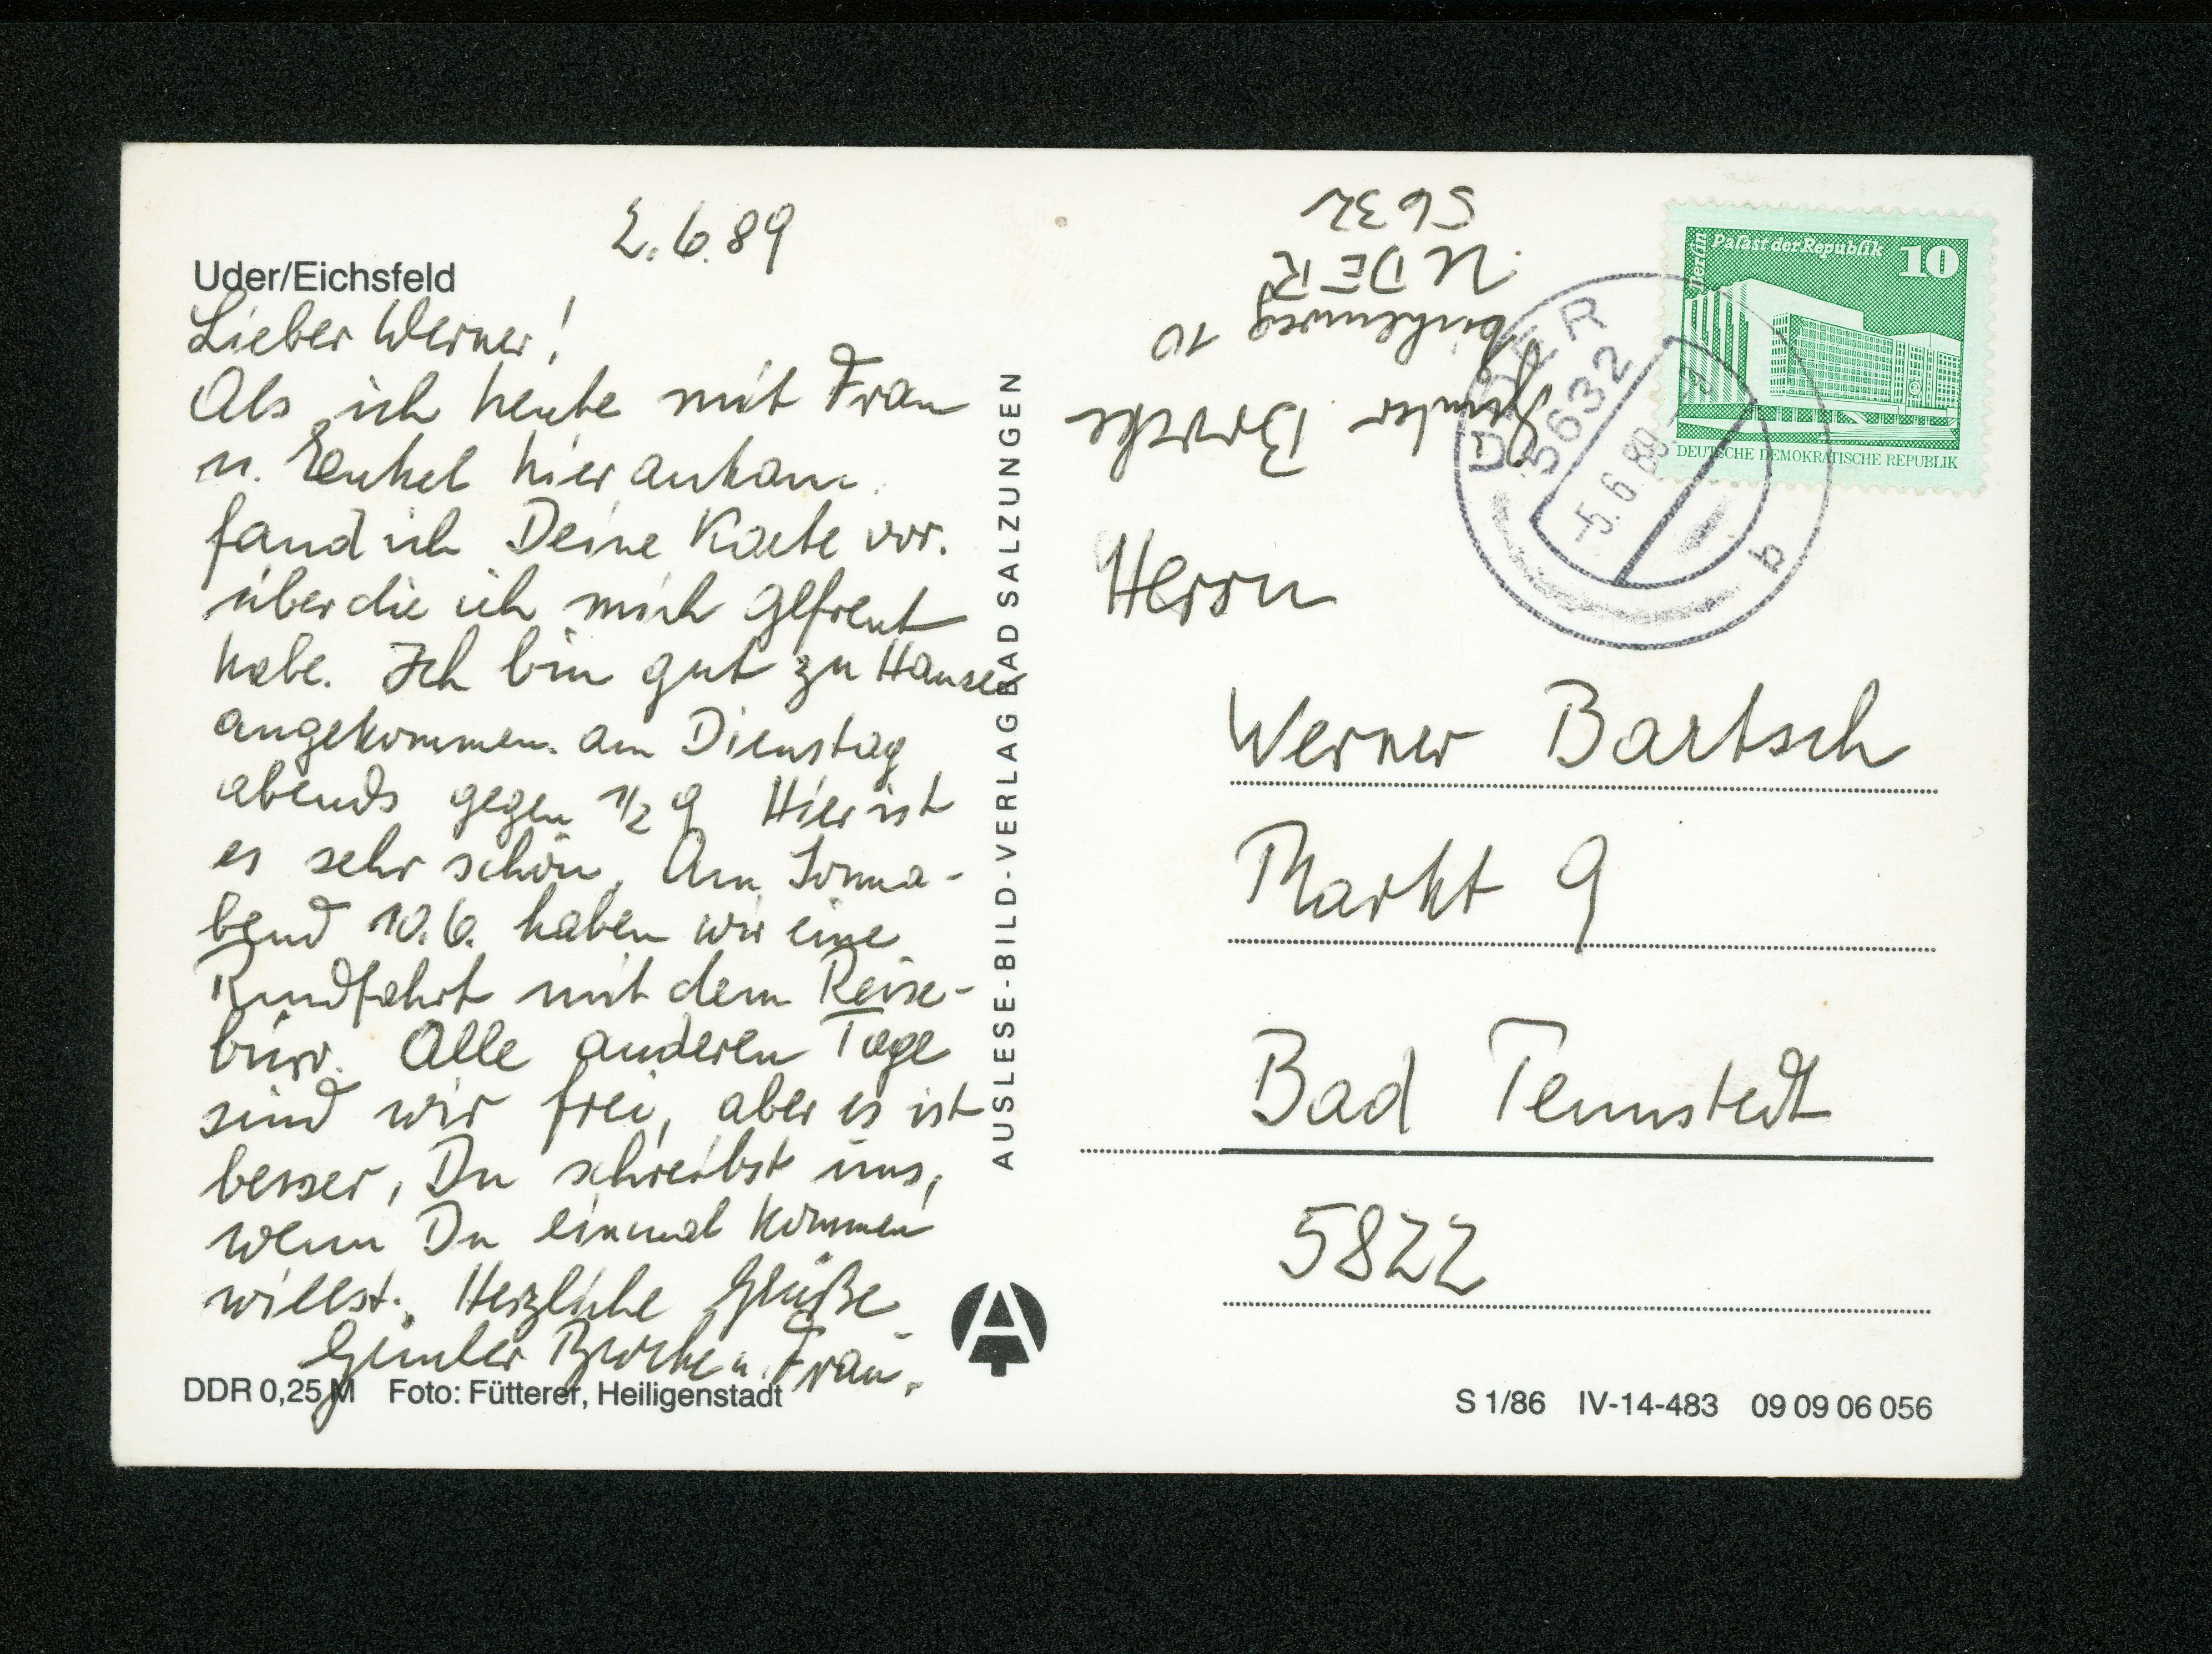 2.6.89
Uder/Eichsfeld
Lieber Werner!
Als ich heute mit Frau
u. Enkel hier ankam.
fand ich Deine Karte vor.
über die ich mich gefreut
habe. Ich bin gut zu Hause
angekommen. am Dienstag
abends gegen 1/2 9 Hier ist
es sehr schön. Am Sonna-
bend 10.6. haben wir eine
Rundfahrt mit dem Reise-
büro. Alle anderen Tage
sind wir frei, aber es ist
besser, Du schreibst uns,
wenn Du einmal kommen
willst. Herzliche Grüße
Günter u. Frau.
DDR 0,25 M Foto: Fütterer, Heiligenstadt
AUSLESE-BILD-VERLAG BAD SALZUNGEN
A
Günter
Birkenweg 10
UDER
5632
Berlin Palast der Republik 10
DEUTSCHE DEMOKRATISCHE REPUBLIK
UDER
5632
-5.6.89
b
Herrn
Werner Bartsch
Markt 9
Bad Tennstedt
5822
S 1/86 IV-14-483 09 09 06 056